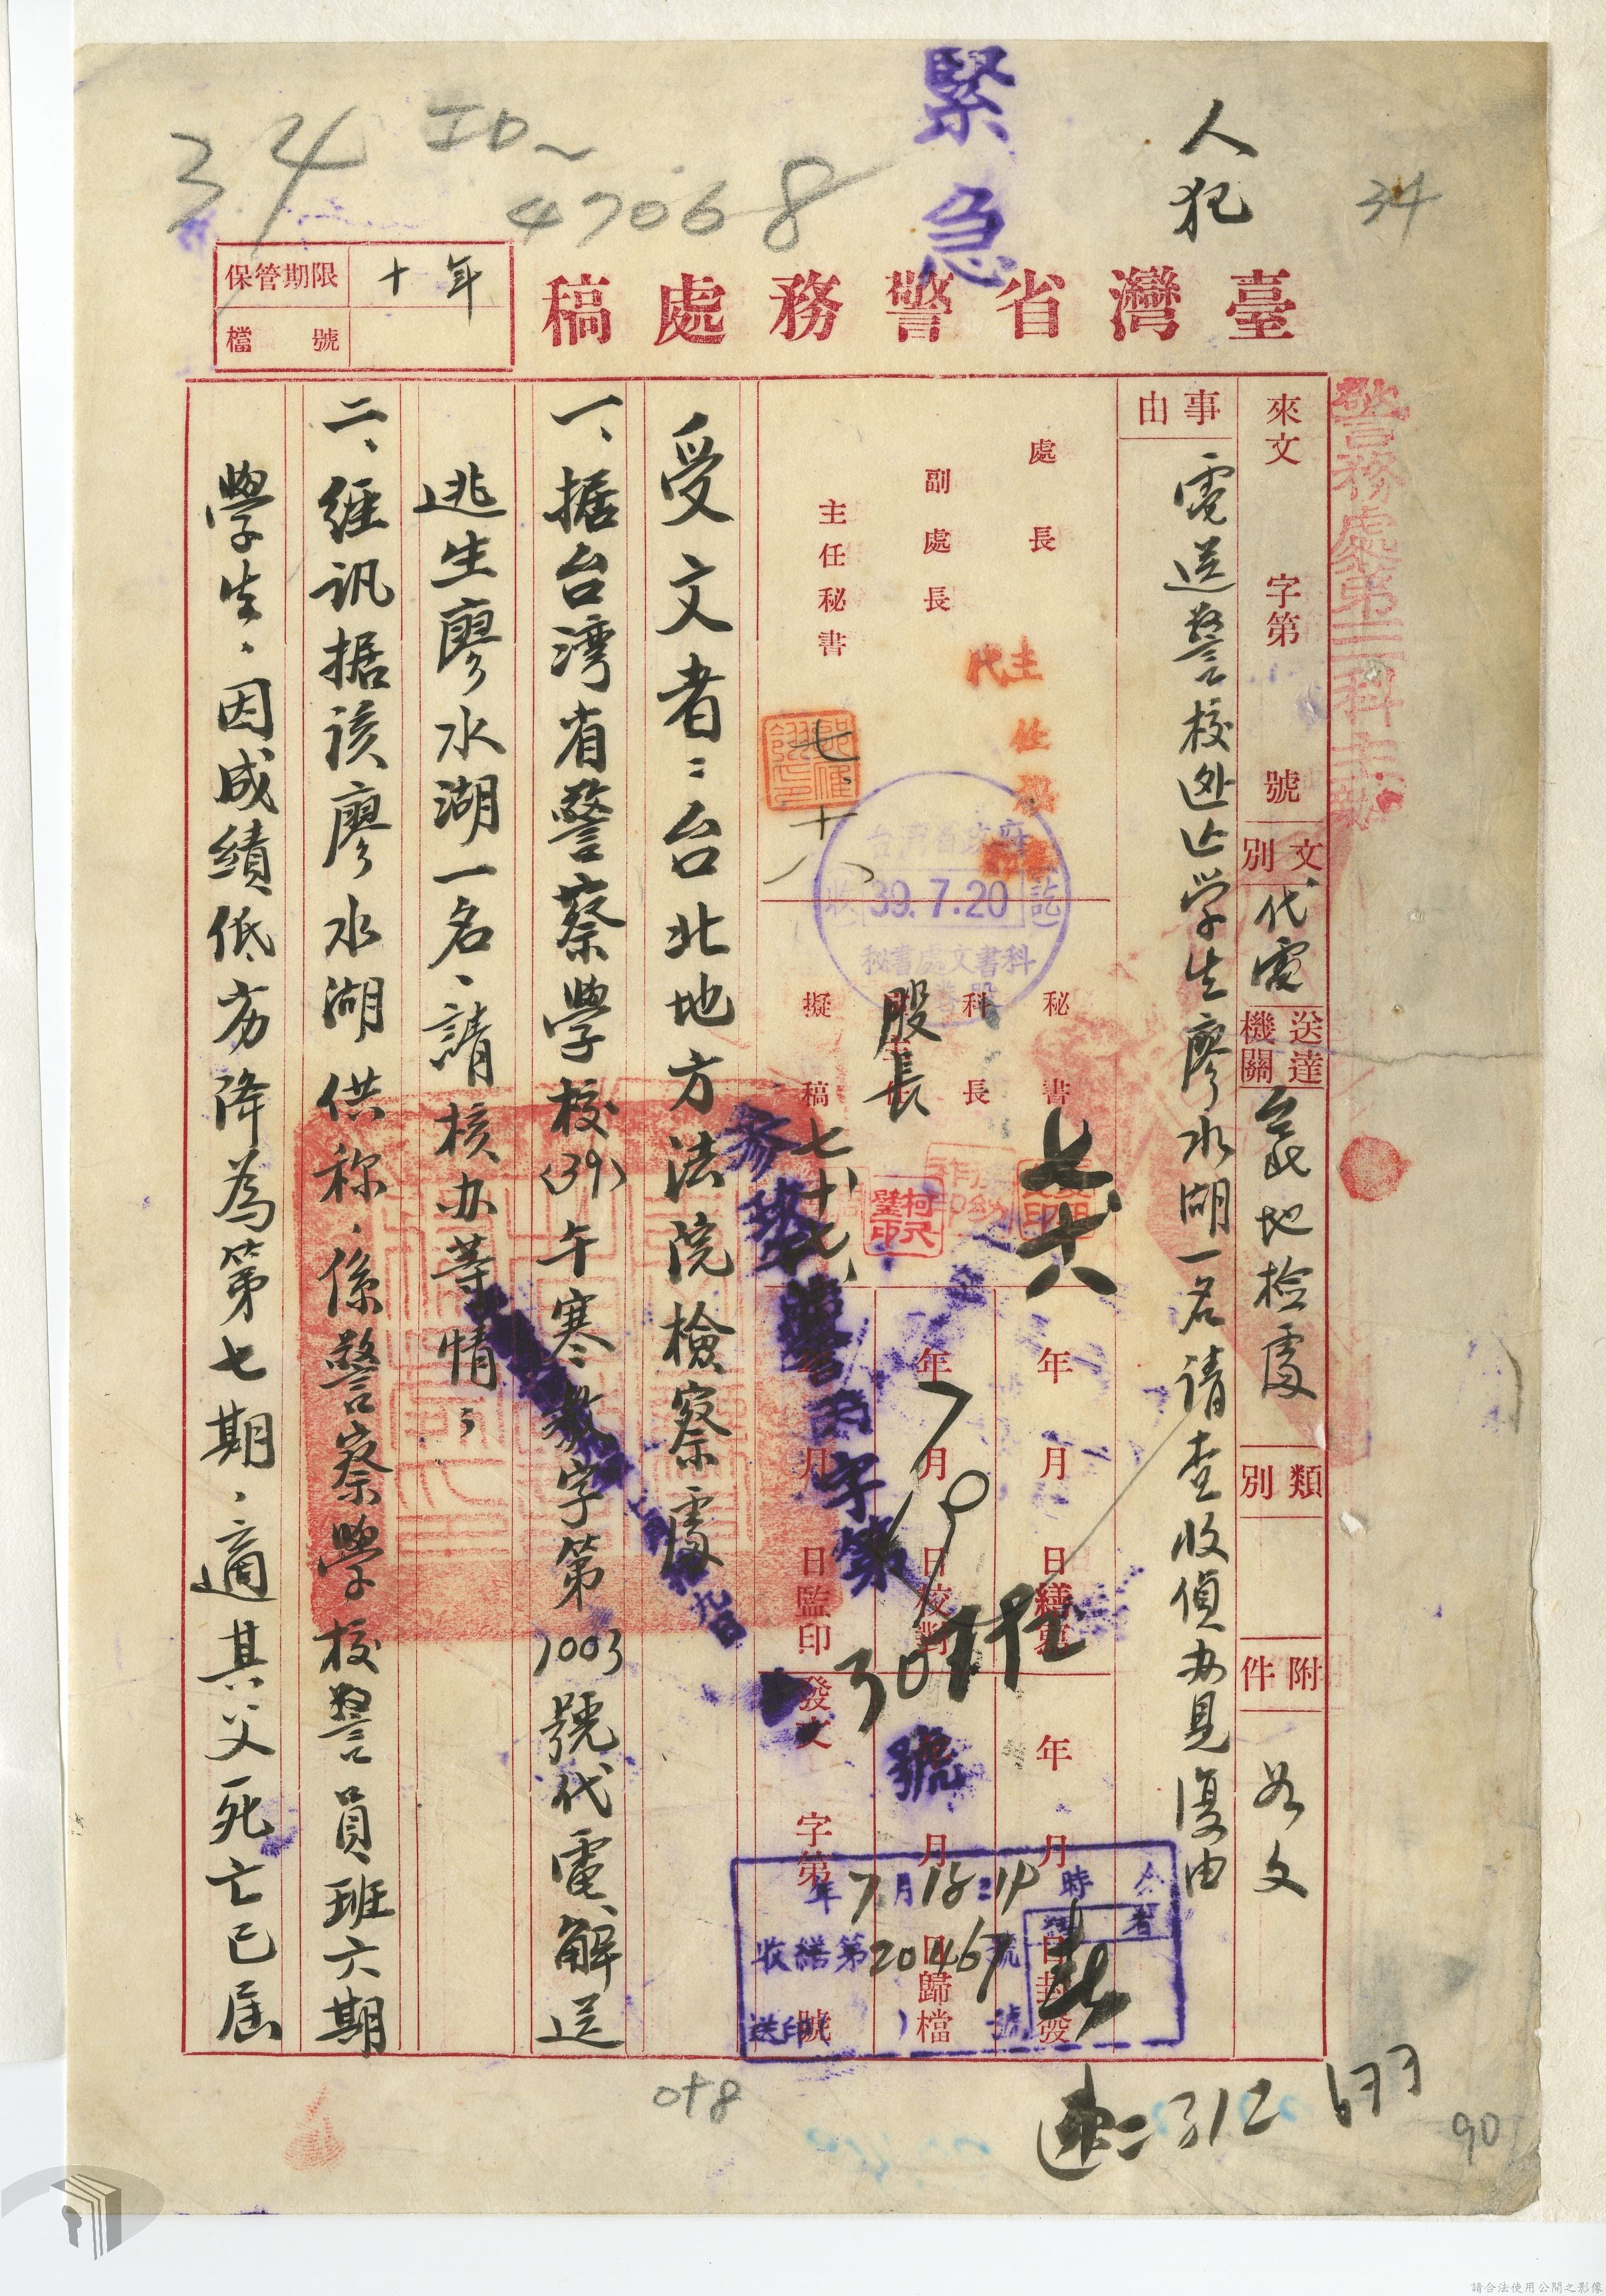 緊急
人犯
34
34
ID~
47068
保管期限 十年
檔號
臺灣省警務處稿
警務處第二科主辦
來文 字第 號
文別 代電
送達機關 台北地檢處
類別
附件 如文
事由 電送警校逃亡学生廖水湖一名请查收偵办見復由
處長
副處長
主任秘書
主任秘書
代
七、十八
台灣省政府
收 39.7.20 訖
秘書處文書科
秘書
科長
股長
擬稿
七、十七、
柯尺璧印
年 月 日繕寫
年 月 日校對
7 19
月 日監印
年 月 日封發
月 日歸檔
發文 字第 號
字第
號
年7月18日14時
收繕第20467號
送印 號
受文者：台北地方法院檢察處
一、据台湾省警察學校(39)午寒教字第1003號代電、解送
逃生廖水湖一名、請核办等情；
二、經訊据该廖水湖供称、係警察學校警員班六期
學生、因成績低劣降為第七期、適其父死亡已屆
048
312
633
90
請合法使用公開之影像